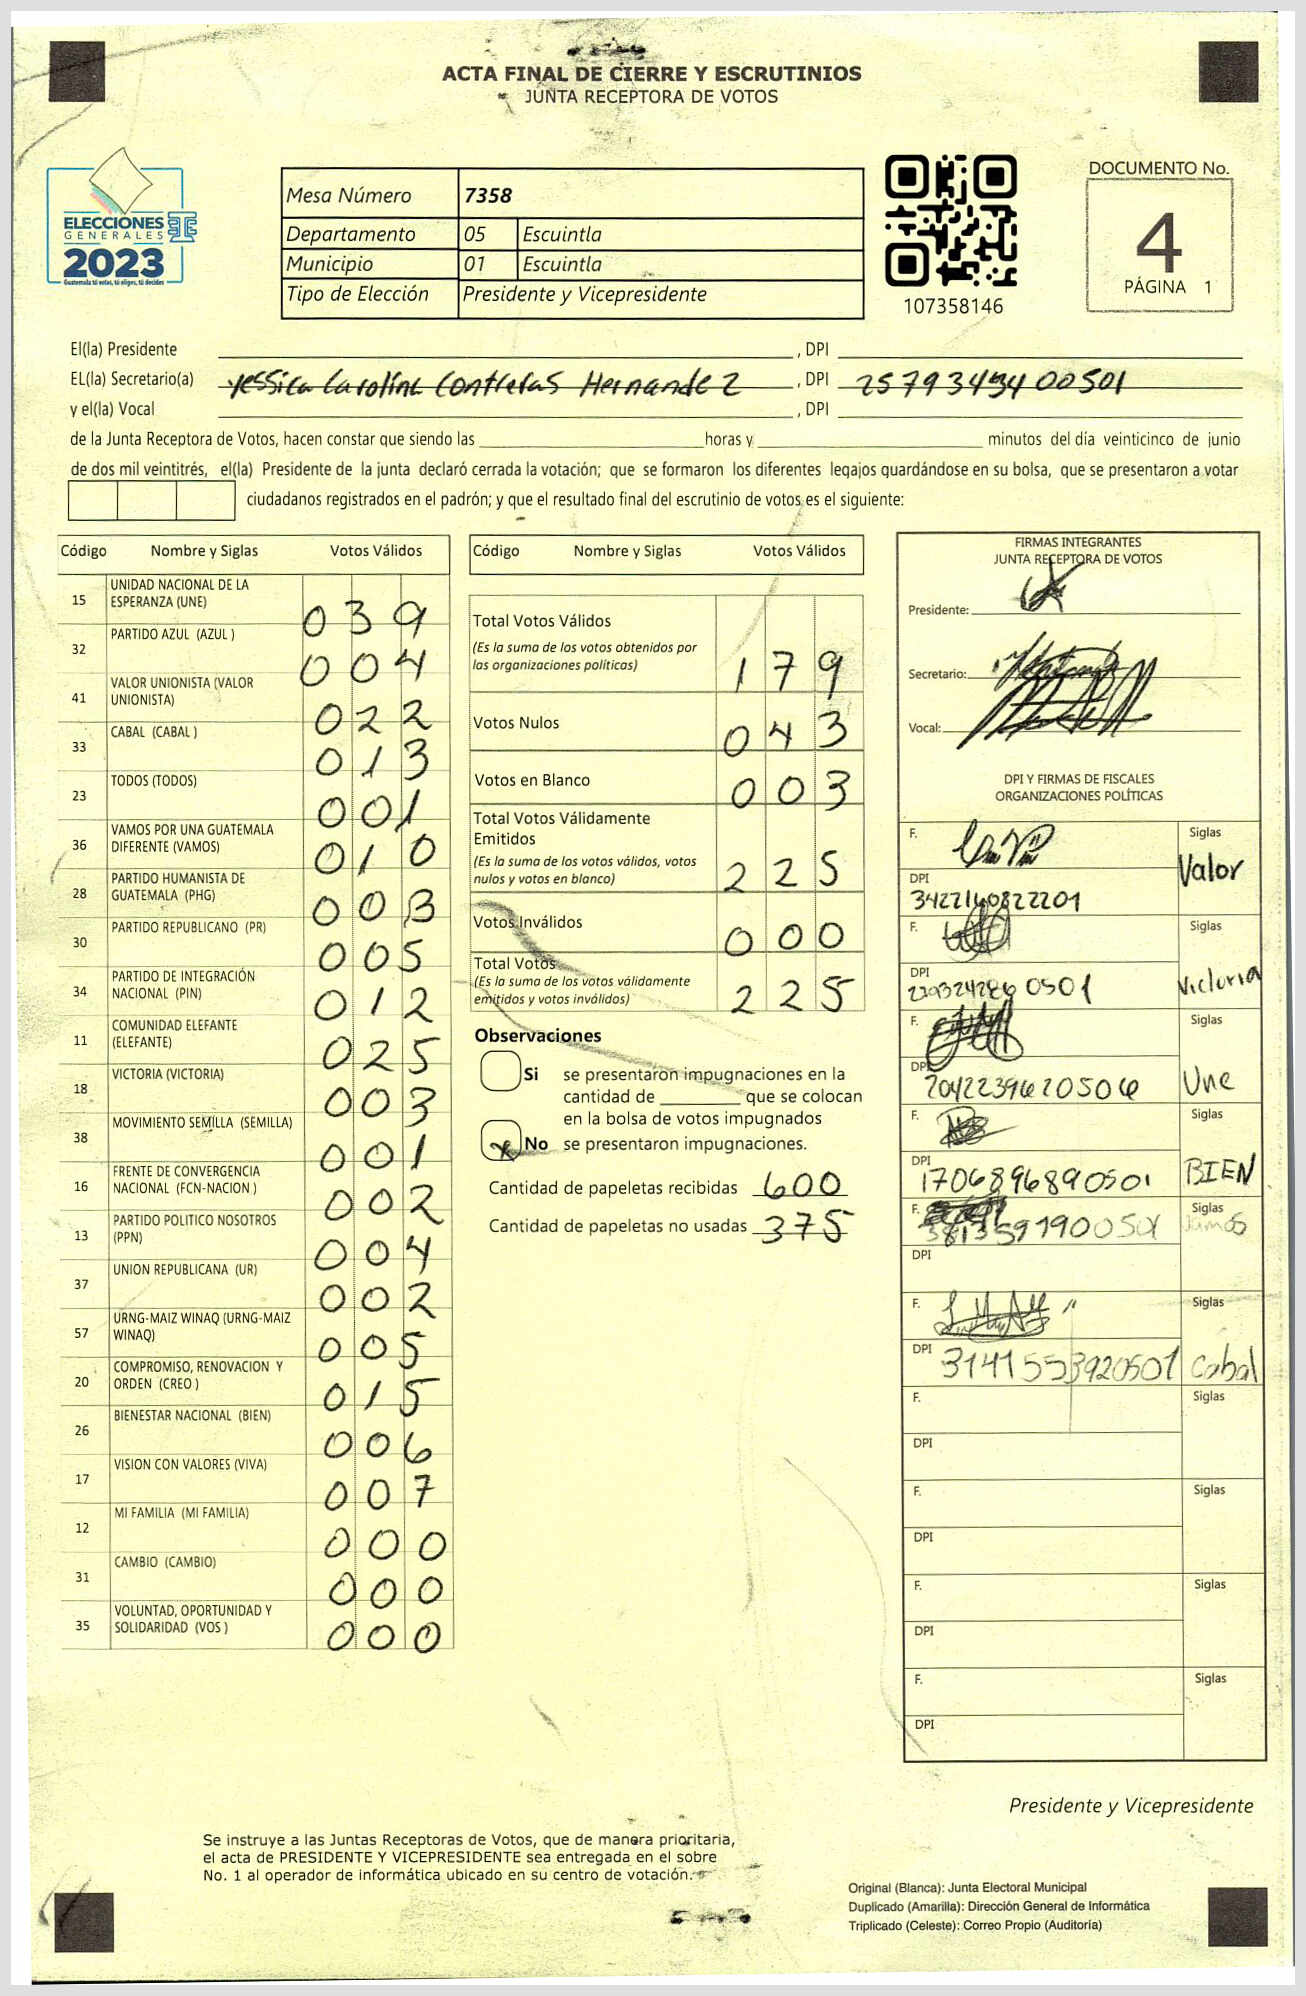 ACTA FINAL DE CIERRE Y ESCRUTINIOS
JUNTA RECEPTORA DE VOTOS
ELECCIONES
GENERALES
2023
Guatemala tú votas, tú eliges, tú decides
Mesa Número 7358
Departamento 05 Escuintla
Municipio 01 Escuintla
Tipo de Elección Presidente y Vicepresidente
107358146
DOCUMENTO No.
4
PÁGINA 1
El(la) Presidente , DPI
EL(la) Secretario(a) Yessica Carolina Contreras Hernandez , DPI
y el(la) Vocal , DPI
de la Junta Receptora de Votos, hacen constar que siendo las horas y minutos del día veinticinco de junio
de dos mil veintitrés, el(la) Presidente de la junta declaró cerrada la votación; que se formaron los diferentes legajos guardándose en su bolsa, que se presentaron a votar
ciudadanos registrados en el padrón; y que el resultado final del escrutinio de votos es el siguiente:
Código Nombre y Siglas Votos Válidos
15 UNIDAD NACIONAL DE LA
ESPERANZA (UNE) 039
32 PARTIDO AZUL (AZUL ) 004
41 VALOR UNIONISTA (VALOR
UNIONISTA) 022
33 CABAL (CABAL ) 013
23 TODOS (TODOS) 001
36 VAMOS POR UNA GUATEMALA
DIFERENTE (VAMOS) 010
28 PARTIDO HUMANISTA DE
GUATEMALA (PHG) 003
30 PARTIDO REPUBLICANO (PR) 005
34 PARTIDO DE INTEGRACIÓN
NACIONAL (PIN) 012
11 COMUNIDAD ELEFANTE
(ELEFANTE) 025
18 VICTORIA (VICTORIA) 003
38 MOVIMIENTO SEMILLA (SEMILLA) 001
16 FRENTE DE CONVERGENCIA
NACIONAL (FCN-NACION ) 002
13 PARTIDO POLITICO NOSOTROS
(PPN) 004
37 UNION REPUBLICANA (UR) 002
57 URNG-MAIZ WINAQ (URNG-MAIZ
WINAQ) 005
20 COMPROMISO, RENOVACION Y
ORDEN (CREO ) 015
26 BIENESTAR NACIONAL (BIEN) 006
17 VISION CON VALORES (VIVA) 007
12 MI FAMILIA (MI FAMILIA) 000
31 CAMBIO (CAMBIO) 000
35 VOLUNTAD, OPORTUNIDAD Y
SOLIDARIDAD (VOS ) 000
Código Nombre y Siglas Votos Válidos
Total Votos Válidos
(Es la suma de los votos obtenidos por
las organizaciones políticas) 179
Votos Nulos 043
Votos en Blanco 003
Total Votos Válidamente
Emitidos
(Es la suma de los votos válidos, votos
nulos y votos en blanco) 225
Votos Inválidos 000
Total Votos
(Es la suma de los votos válidamente
emitidos y votos inválidos) 225
Observaciones
Si se presentaron impugnaciones en la
cantidad de que se colocan
en la bolsa de votos impugnados
x No se presentaron impugnaciones.
Cantidad de papeletas recibidas 600
Cantidad de papeletas no usadas 375
FIRMAS INTEGRANTES
JUNTA RECEPTORA DE VOTOS
Presidente:
Secretario:
Vocal:
DPI Y FIRMAS DE FISCALES
ORGANIZACIONES POLÍTICAS
F. Siglas
Valor
DPI
3422140822201
F. Siglas
DPI
Victoria
F. Siglas
DPI
2042239620506 Une
F. Siglas
DPI
1706896890501 BIEN
F. Siglas
Vamos
DPI
F. Siglas
DPI 3141553920501 Cabal
F. Siglas
DPI
F. Siglas
DPI
F. Siglas
DPI
F. Siglas
DPI
Presidente y Vicepresidente
Se instruye a las Juntas Receptoras de Votos, que de manera prioritaria,
el acta de PRESIDENTE Y VICEPRESIDENTE sea entregada en el sobre
No. 1 al operador de informática ubicado en su centro de votación.
Original (Blanca): Junta Electoral Municipal
Duplicado (Amarilla): Dirección General de Informática
Triplicado (Celeste): Correo Propio (Auditoría)